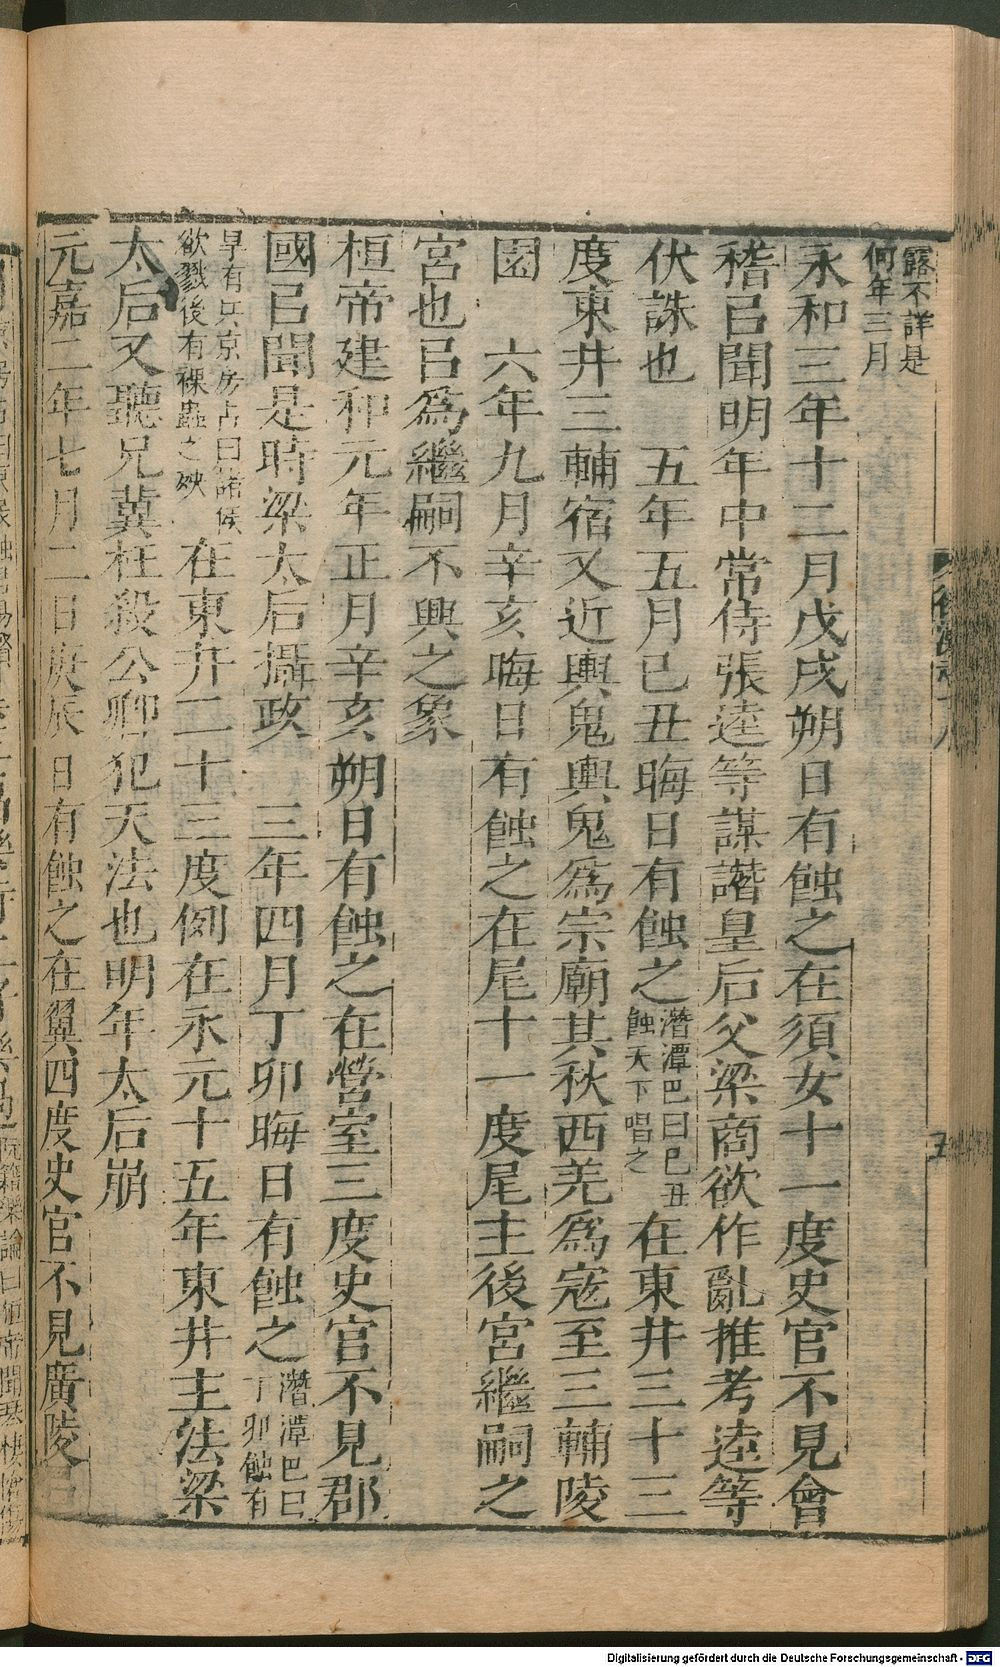 露不詳是
何年三月
永和三年十二月戊戌朔日有蝕之在須女十一度史官不見會
稽㠯聞明年中常侍張逵等謀譖皇后父梁商欲作亂推考逵等
伏誅也　五年五月己丑晦日有蝕之潛潭巴曰己丑蝕天下唱之在東井三十三
度東井三輔宿又近輿鬼輿鬼爲宗廟其秋西羌爲寇至三輔陵
園　六年九月辛亥晦日有蝕之在尾十一度尾主後宮繼嗣之
宮也㠯爲繼嗣不興之象
桓帝建和元年正月辛亥朔日有蝕之在營室三度史官不見郡
國㠯聞是時梁太后攝政　三年四月丁卯晦日有蝕之潛潭巴曰丁卯蝕有
旱有兵京房占曰諸侯欲戮後有裸蟲之殃在東井二十三度例在永元十五年東井主法梁
太后又聽兄冀枉殺公卿犯天法也明年太后崩
元嘉二年七月二日庚辰日有蝕之在翼四度史官不見廣陵㠯
後漢志十八
五
Digitalisierung gefördert durch die Deutsche Forschungsgemeinschaft - DFG